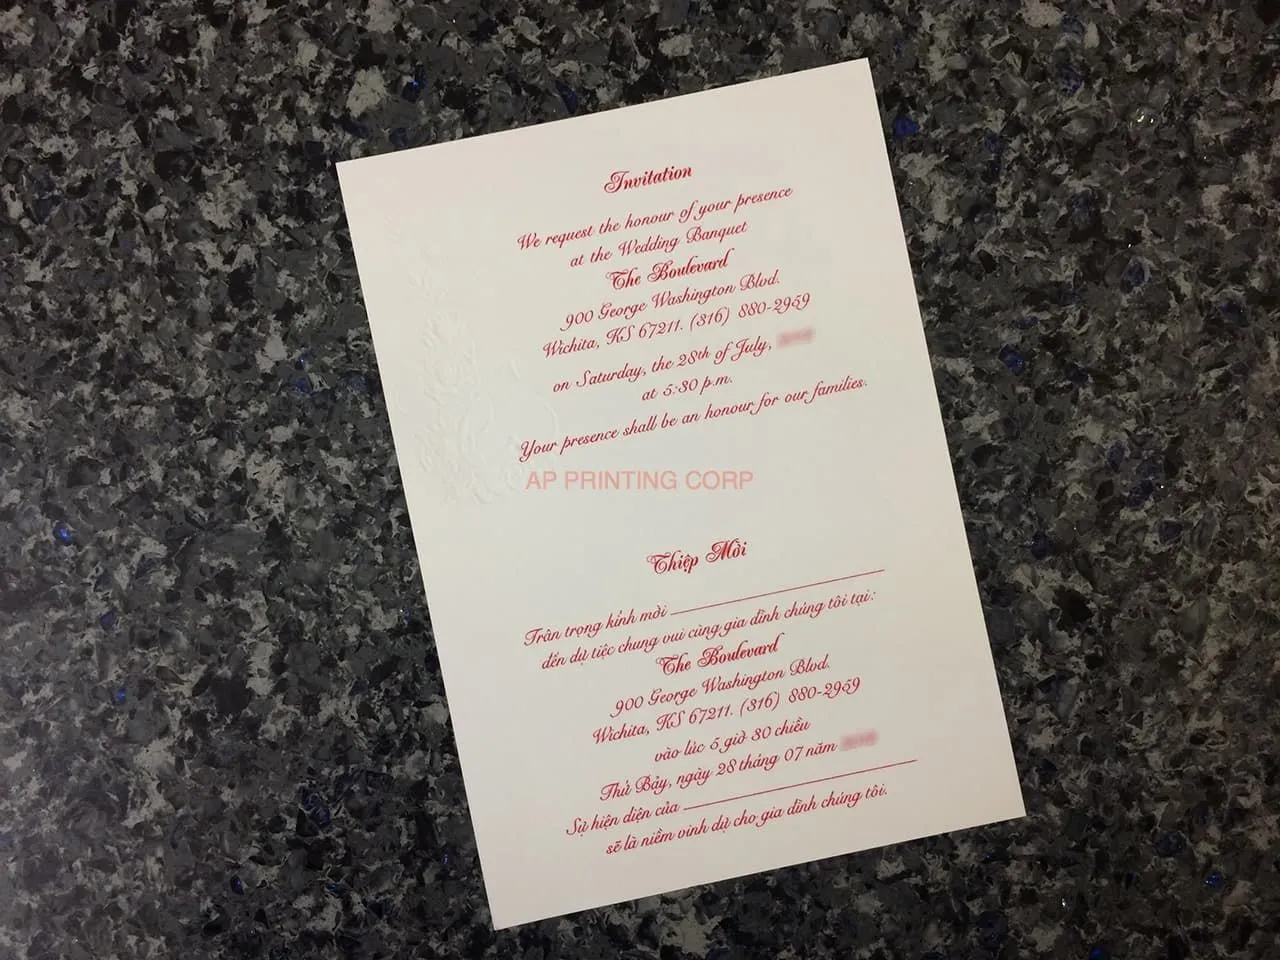 Invitation
We request the honour of your presence
at the Wedding Banquet
The Boulevard
900 George Washington Blvd.
Wichita, KS 67211. (316) 880-2959
on Saturday, the 28th of July,
at 5:30 p.m.
Your presence shall be an honour for our families.
AP PRINTING CORP
Thiệp Mời
Trân trọng kính mời
đến dự tiệc chung vui cùng gia đình chúng tôi tại:
The Boulevard
900 George Washington Blvd.
Wichita, KS 67211. (316) 880-2959
vào lúc 5 giờ 30 chiều
Thứ Bảy, ngày 28 tháng 07 năm
Sự hiện diện của
sẽ là niềm vinh dự cho gia đình chúng tôi.